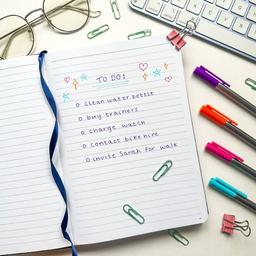 TO DO:
o clean water bottle
o buy trainers
o charge watch
o contact bike hire
o invite Sarah for walk